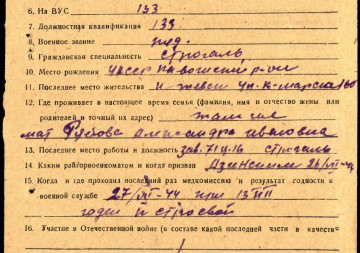 6. На ВУС 133
7. Должностная квалификация 133
8. Военное звание ряд.
9. Гражданская специальность строгаль
10. Место рождения
11. Последнее место жительства г. Ижевск ул. К-Маркса 160
12. Где проживает в настоящее время семья (фамилия, имя и отчество жены или
родителей и точный их адрес) там же
мат Рябова Александра Ивановна
13. Последнее место работы и должность зав. 71 ц. 16 строгаль
14. Каким райгорвоенкоматом и когда призван
15. Когда и где проходил последний раз медкомиссию и результат годности к
военной службе 27/VII-44 при
годен к строевой
16. Участие в Отечественной войне (в составе какой последней части в качестве